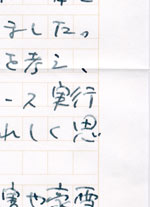 ました。
を考え、
ース実行
れしく思
実や豪雪